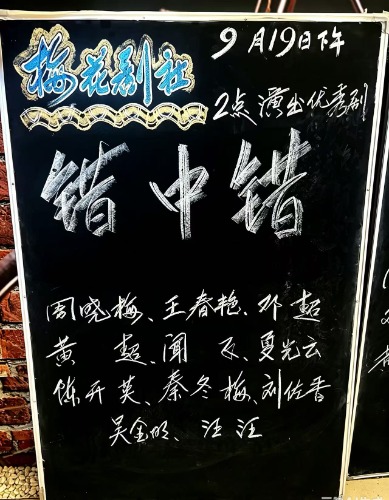 梅花剧社
9月19日下午
2点演出优秀剧
错中错
周晓梅、王春艳、邓超
黄超、闻飞、夏光云
陈开英、秦冬梅、刘佐香
吴金明、汪汪